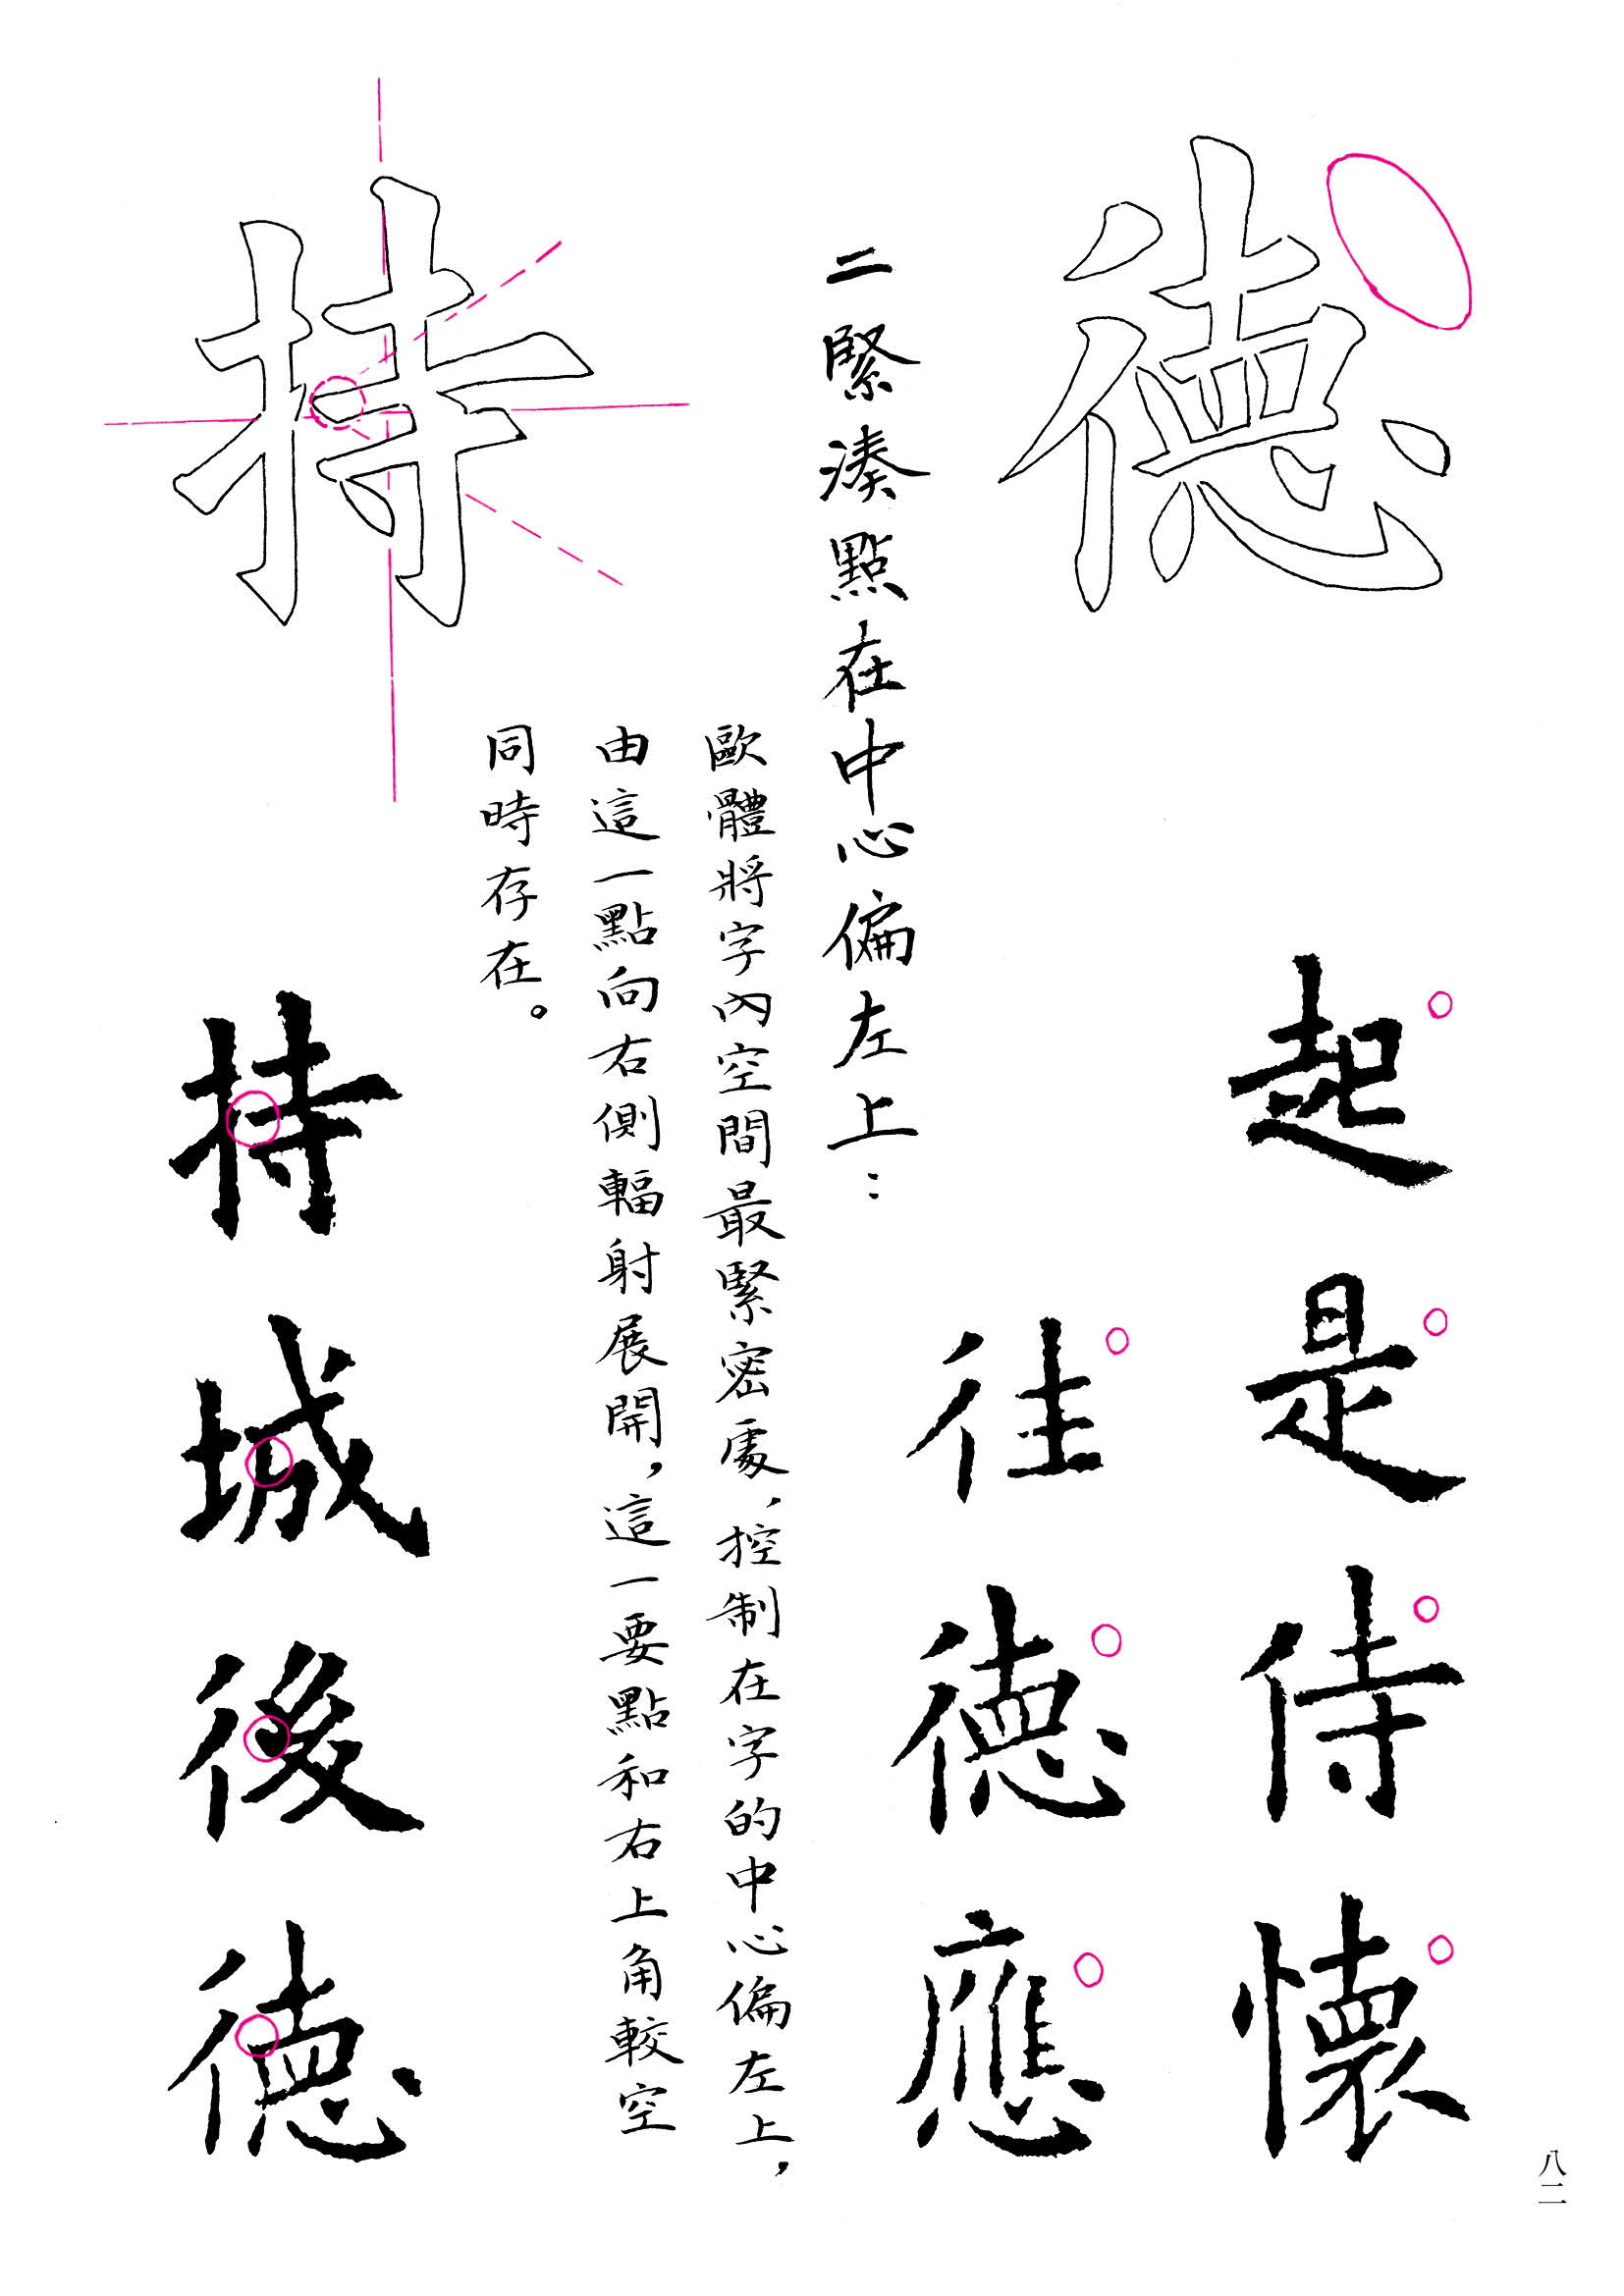 德
起是侍懷
往德應
二緊湊點在中心偏左上：
歐體將字內空間最緊密處，控制在字的中心偏左上，
由這一點向右側輻射展開，這一要點和右上角較空
同時存在。
持
持城後德
八二